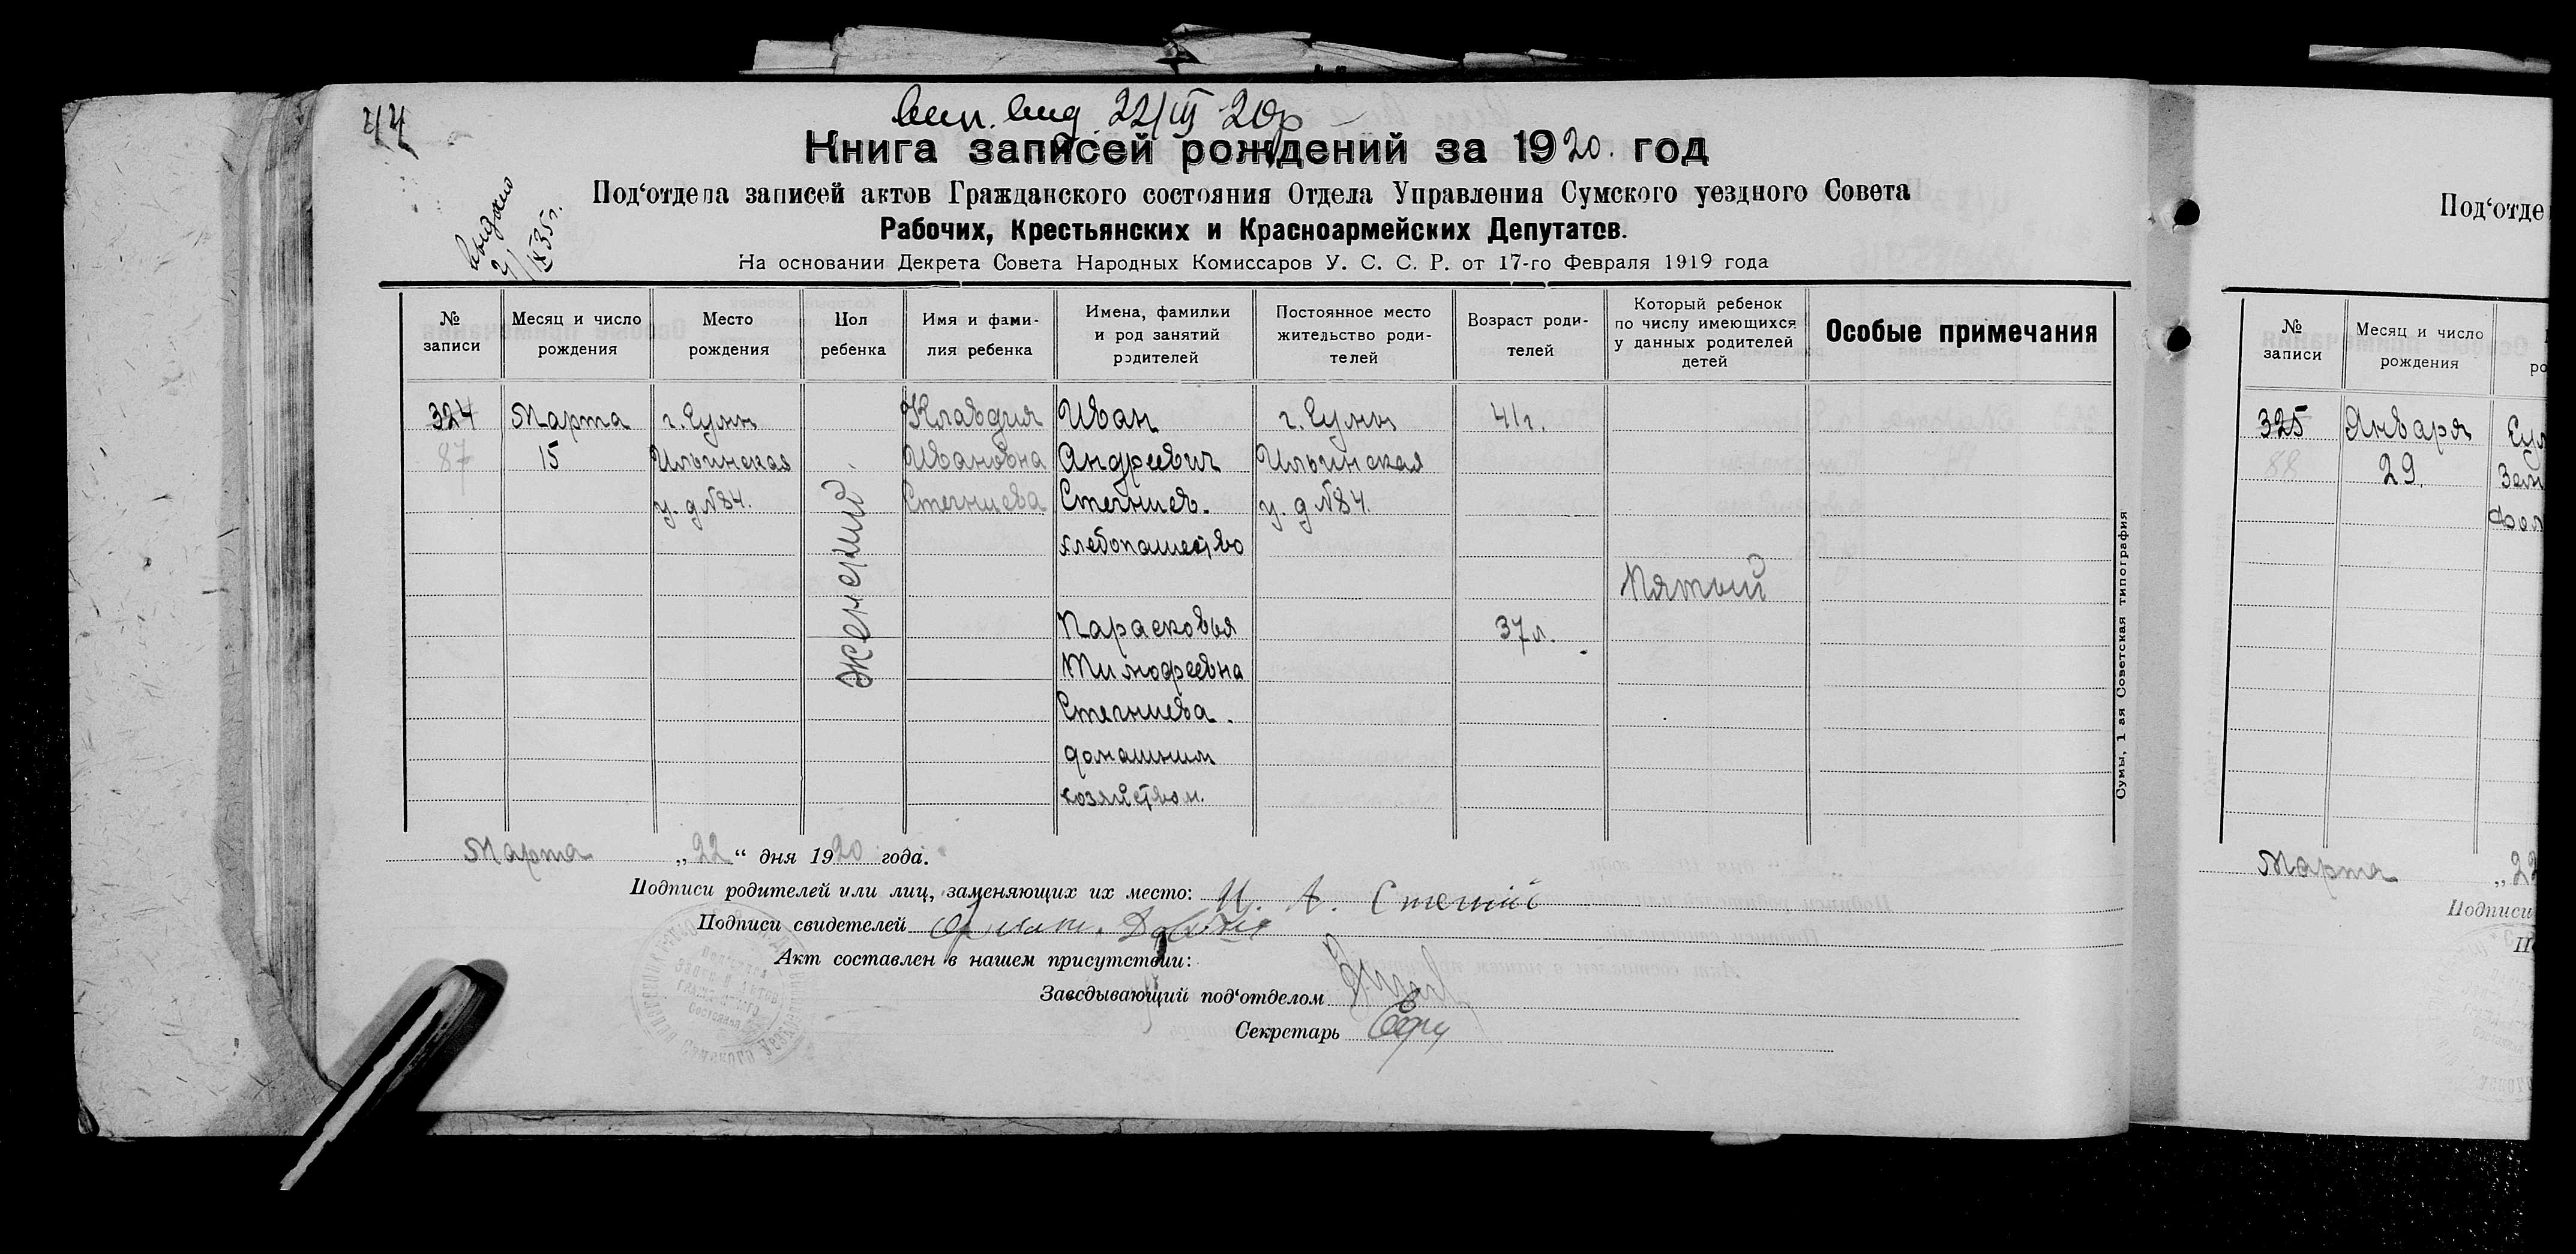 44
вып. выд. 22/III 20 р
Книга записей рождений за 1920. год
Под‘отдела записей актов Гражданского состояния Отдела Управления Сумского уездного Совета
Рабочих, Крестьянских и Красноармейских Депутатов.
На основании Декрета Совета Народных Комиссаров У. С. С. Р. от 17-го Февраля 1919 года
выдано
IX 35 г.
№ записи
Месяц и число рождения
Место рождения
Пол ребенка
Имя и фами-
лия ребенка
Имена, фамилии
и род занятий
родителей
Постоянное место
жительство роди-
телей
Возраст роди-
телей
Который ребенок
по числу имеющихся
у данных родителей
детей
Особые примечания
324
87
Марта
15
г. Сумы
Ильинская
у. д №84.
женский
Клавдия
Ивановна
Стегниева
Иван
Андреевич
Стегниев.
хлебопашество
Парасковья
Тимофеевна
Стегниева.
домашним
хозяйством.
г. Сумы
Ильинская
у. д №84.
41 г.
37 л.
Пятый
Сумы, 1-ая Советская типография
Марта „22“ дня 1920 года.
Подписи родителей или лиц, заменяющих их место: И. А. Стегніе
Подписи свидетелей
Акт составлен в нашем присутствии:
Заведывающий под‘отделом
Секретарь
Под‘отде
№ записи
Месяц и число
рождения
325
88
Января
29.
Марта „22
Подписи